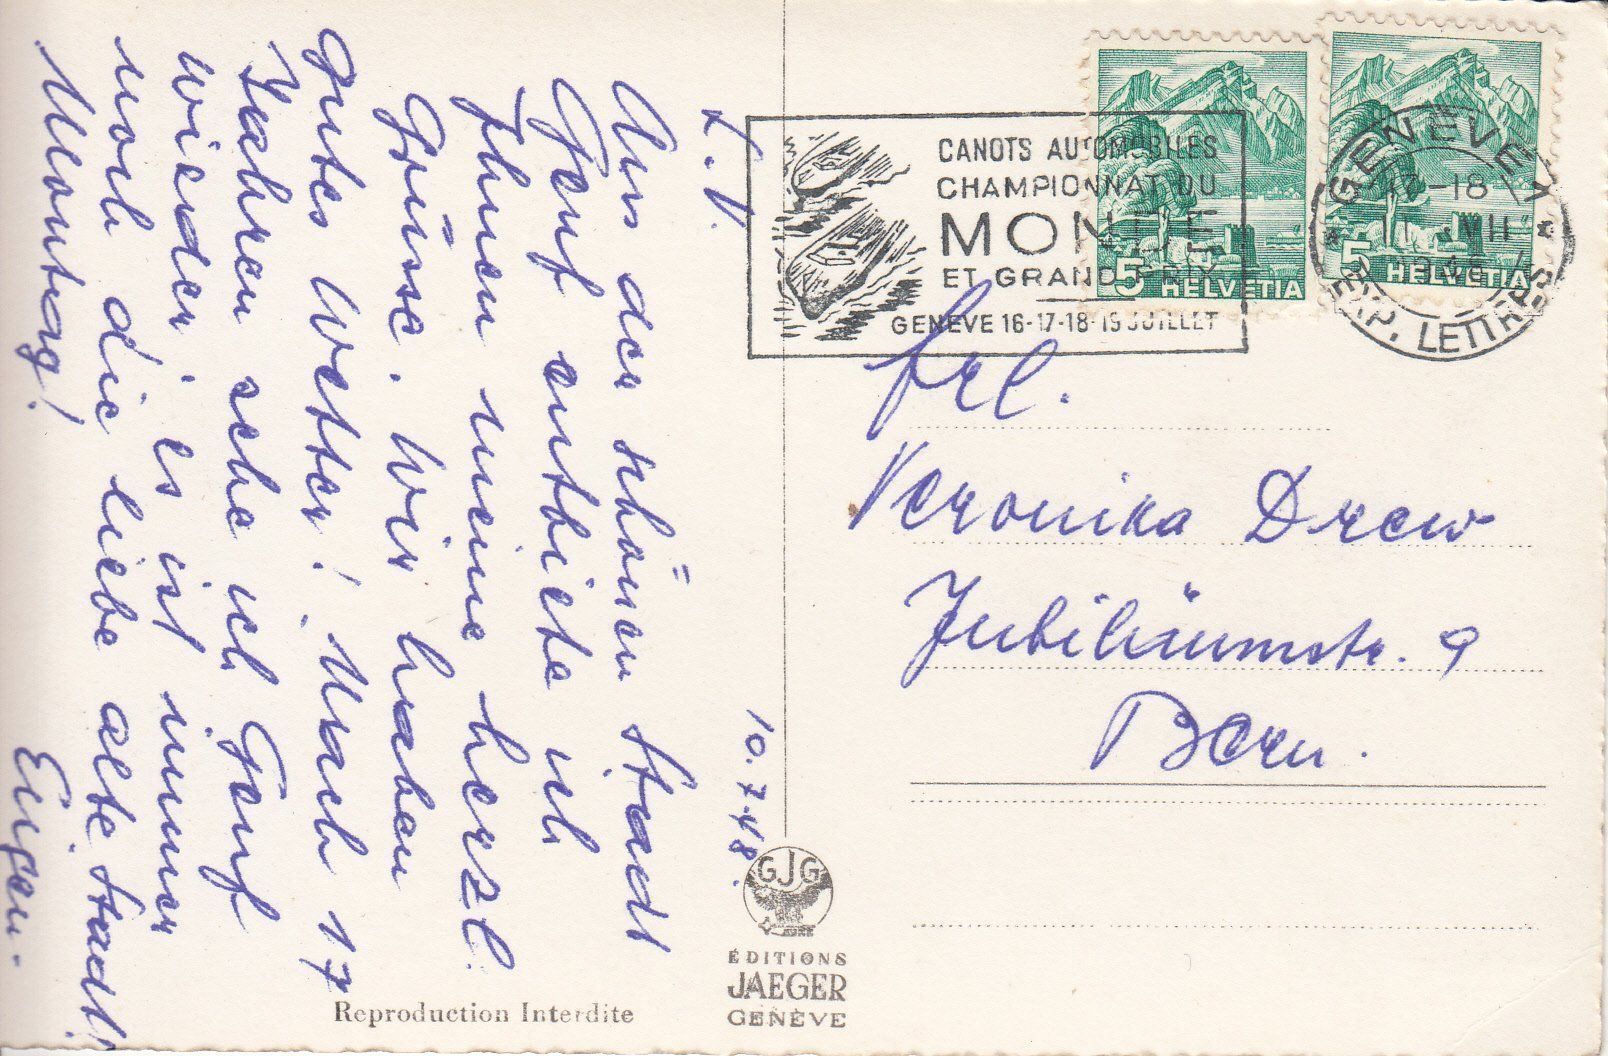 L. V.
10.7.48.
Aus der schönen Stadt
Genf entbiete ich
Ihnen meine herzl.
Grüsse. Wir haben
gutes Wetter! Nach 17
Jahren sehe ich Genf
wieder, es ist immer
noch die liebe alte Stadt!
Montag!
Eugen.
CANOTS AUTOMOBILES
CHAMPIONNAT DU
MONDE
ET GRAND PRIX
GENEVE 16-17-18-19 JUILLET
5 HELVETIA
5 HELVETIA
GENEVE 1
-18
VII
EXP. LETTRES
Frl.
Veronika Drew
Jubiläumstr. 9
Bern.
GJG
ÉDITIONS
JAEGER
GENÈVE
Reproduction Interdite